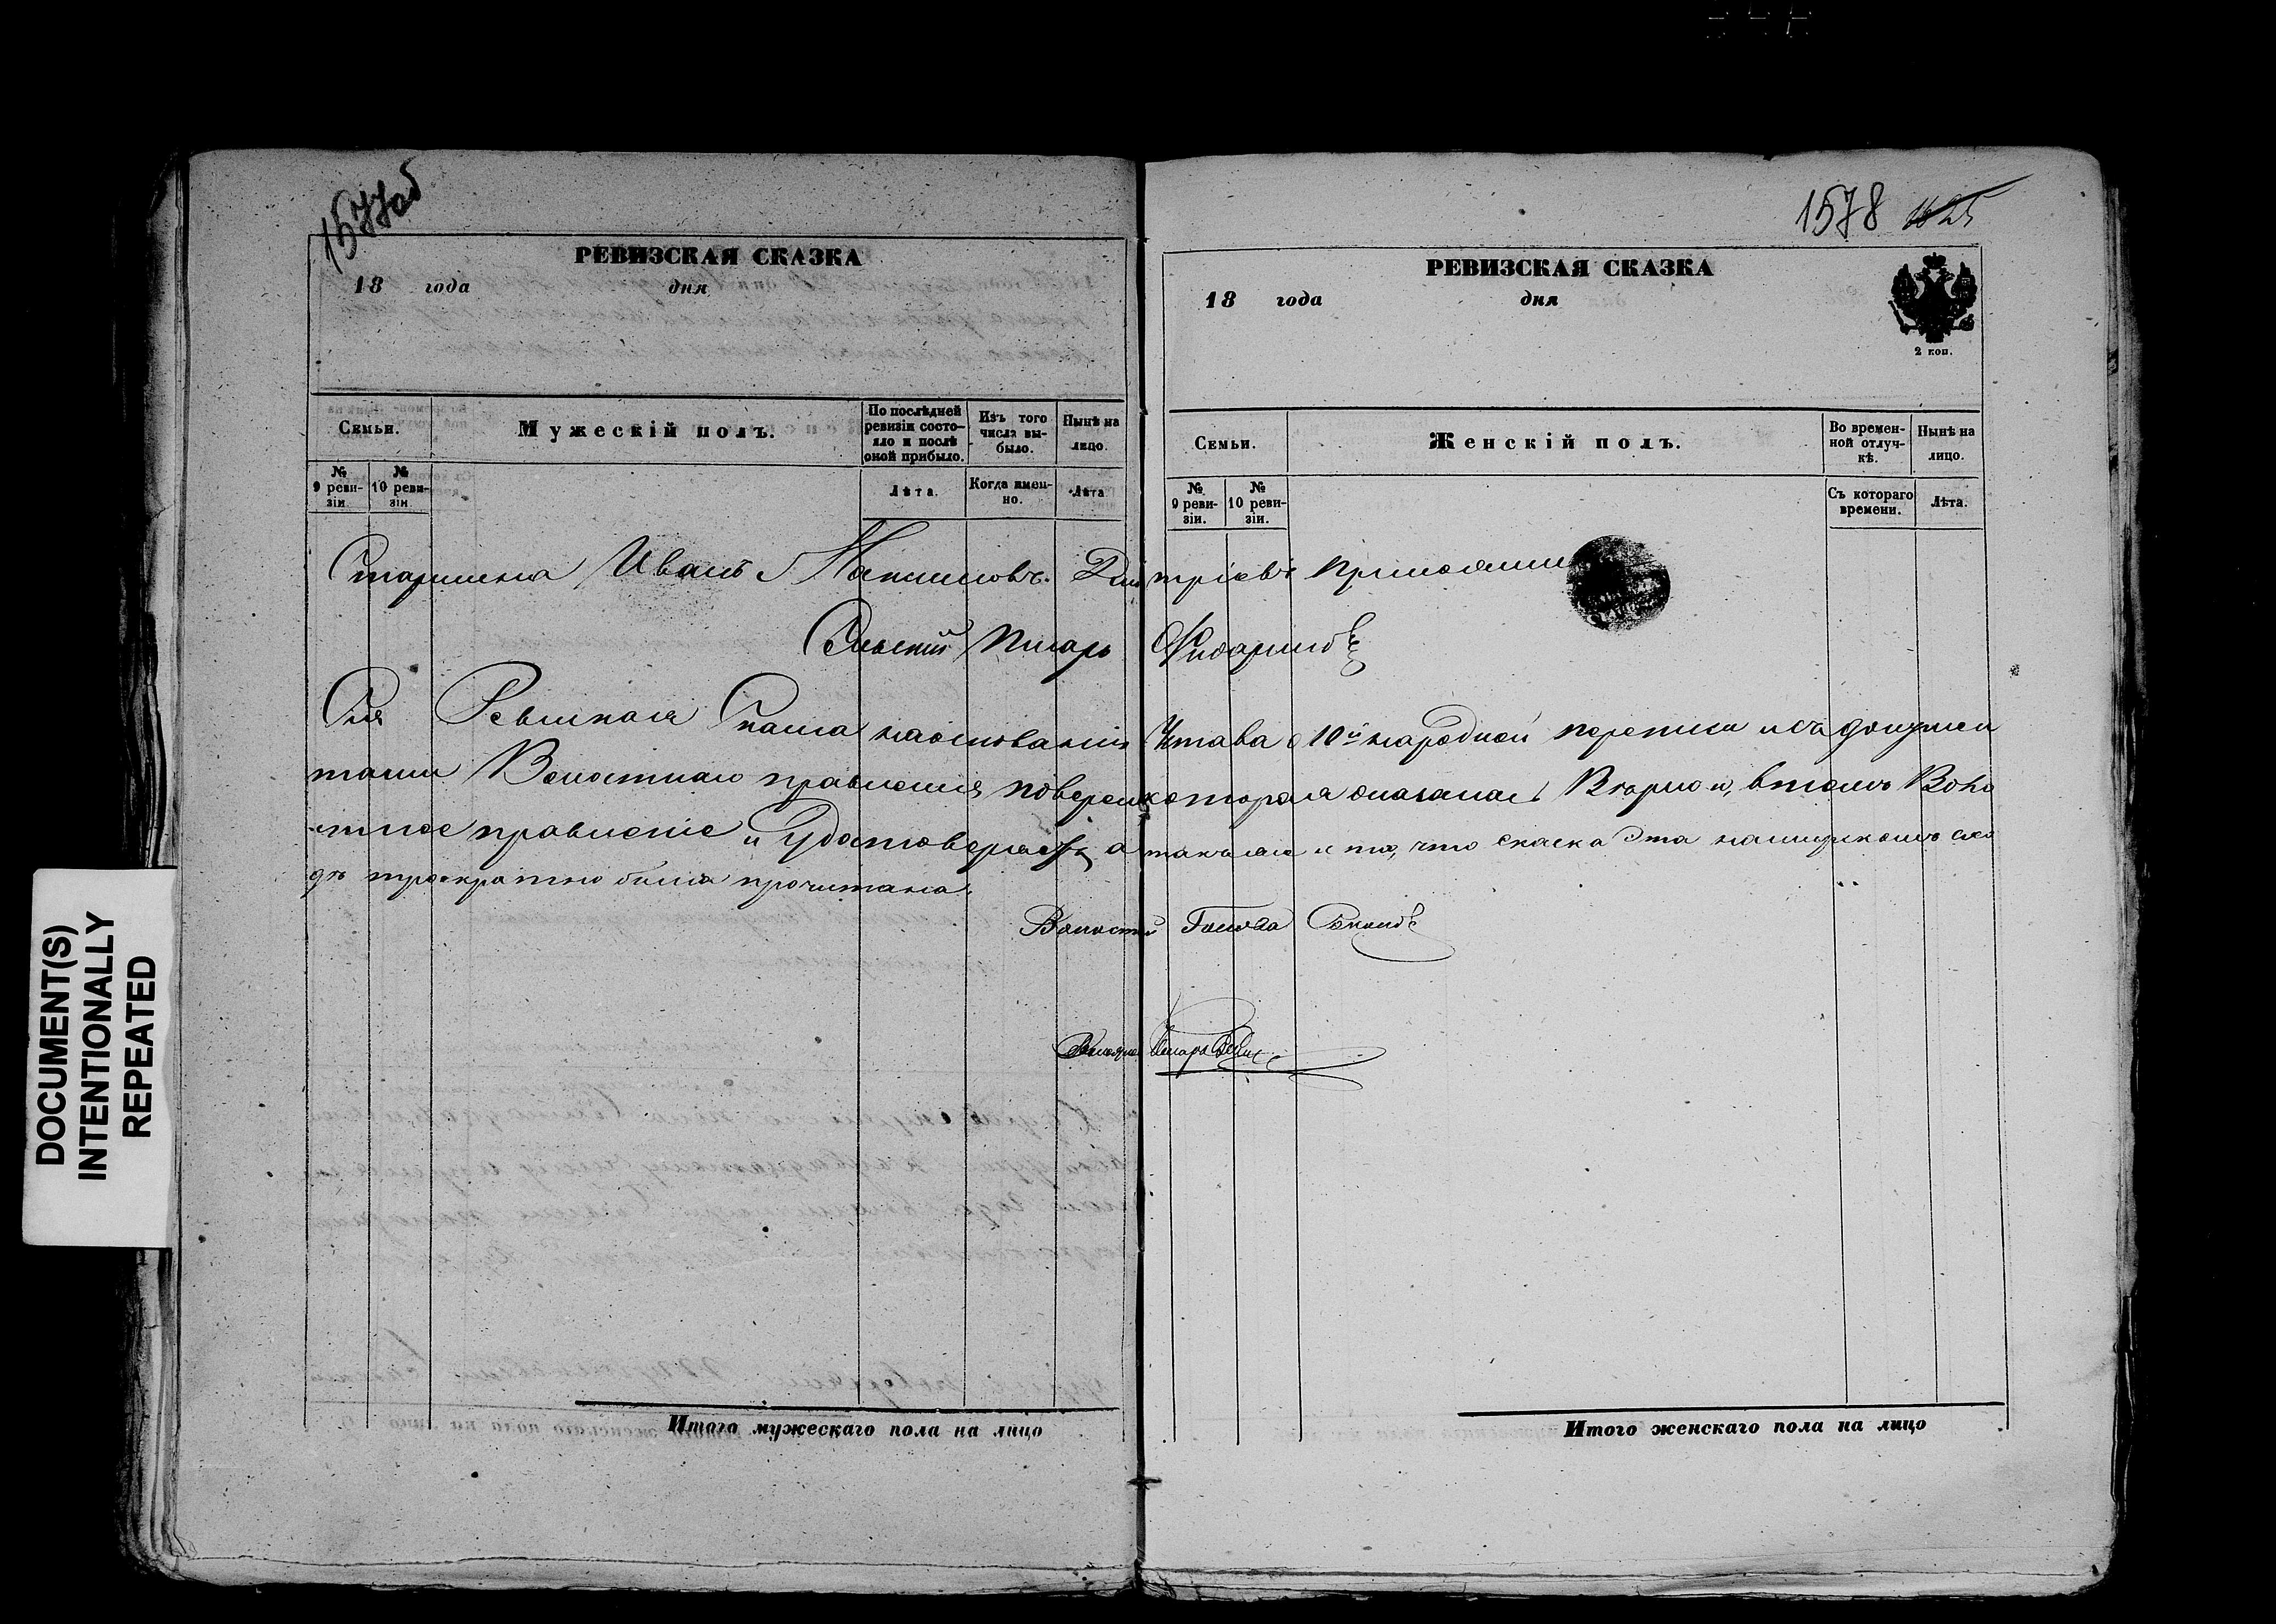 1577об
РЕВИЗСКАЯ СКАЗКА
18 года дня
Семьи.
Мужескій полъ.
По послѣдней ревизіи состояло и послѣ оной прибыло.
Изъ того числа выбыло.
Нынѣ на лицо.
№ 9 ревизіи
№ 10 ревизіи
Лѣта.
Когда именно.
Лѣта
1578 1625
РЕВИЗСКАЯ СКАЗКА
18 года дня
2 коп.
Семьи.
Женскій полъ.
Во временной отлучкѣ.
Нынѣ на лицо.
№ 9 ревизіи.
№ 10 ревизіи.
Съ котораго времени.
Лѣта.
Старшина Иванъ Максимовъ Дмитріевъ
Сельскій Писарь
Сія Ревизкая Скаска наоснованіи Устава о 10й народной переписи исъ докумен
тами Волостнаго правленія поверена которая оказалась Верно и, втомъ Воло
стное правленіе и Удостоверяетъ, а также и то, что скаска Эта намирскомъ схо
дѣ троекратно была прочитана.
Волостной Голова
Волостной Писарь
Итого мужескаго пола на лицо
Итого женскаго пола на лицо
DOCUMENT(S)
INTENTIONALLY
REPEATED